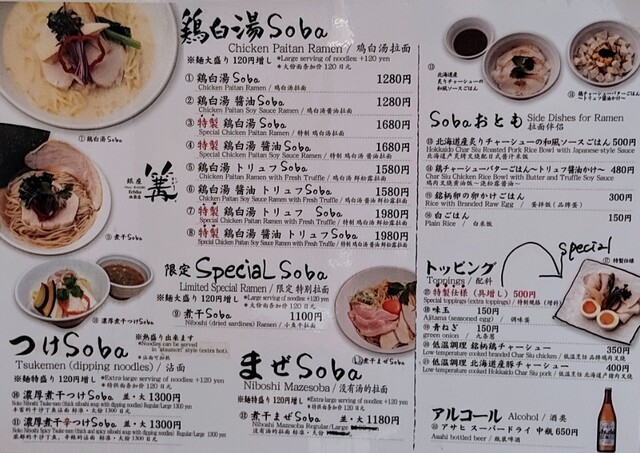 鶏白湯Soba
Chicken Paitan Ramen / 鶏白湯拉面
※麺大盛り 120円増し *Large serving of noodles +120 yen
*大份面条加价 120 日元
① 鶏白湯Soba 1280円
Chicken Paitan Ramen / 鶏白湯拉面
② 鶏白湯 醤油Soba 1280円
Chicken Paitan Soy Sauce Ramen / 鶏白湯酱油拉面
③ 特製 鶏白湯Soba 1680円
Special Chicken Paitan Ramen / 特制 鶏白湯拉面
④ 特製 鶏白湯 醤油Soba 1680円
Special Chicken Paitan Soy Sauce Ramen / 特制 鶏白湯酱油拉面
⑤ 鶏白湯 トリュフSoba 1580円
Chicken Paitan Ramen with Fresh Truffle / 鶏白湯 鲜松露拉面
⑥ 鶏白湯 醤油 トリュフSoba 1580円
Chicken Paitan Soy Sauce Ramen with Fresh Truffle / 鶏白湯酱油 鲜松露拉面
⑦ 特製 鶏白湯 トリュフ Soba 1980円
Special Chicken Paitan Ramen with Fresh Truffle / 特制 鶏白湯 鲜松露拉面
⑧ 特製 鶏白湯 醤油 トリュフSoba 1980円
Special Chicken Paitan Soy Sauce Ramen with Fresh Truffle / 特制 鶏白湯酱油 鲜松露拉面
① 鶏白湯Soba
銀座
篝
Echika
⑨ 煮干Soba
限定 Special Soba
Limited Special Ramen / 限定特別拉面
麺大盛り 120円増し *Large serving of noodles +120 yen
*大份面条加价 120 日元
⑨ 煮干Soba 1100円
Niboshi (dried sardines) Ramen / 小鱼干拉面
⑩ 濃厚煮干つけSoba
※熱盛り出来ます
*Noodles can be served in "atsumori" style (extra hot).
⑫ 煮干まぜSoba
つけSoba
Tsukemen (dipping noodles) / 沾面
※麺特盛り 120円増し *Extra large serving of noodles +120 yen
*特份面条加价 120 日元
⑩ 濃厚煮干つけSoba 並・大 1300円
⑪ 濃厚煮干辛つけSoba 並・大 1300円
まぜSoba
Niboshi Mazesoba / 没有汤的拉面
※麺特盛り 120円増し *Extra large serving of noodles +120 yen
*特份面条加价 120 日元
⑫ 煮干まぜSoba 並・大 1180円
Niboshi Mazesoba Regular/Large
⑬
北海道産
炙りチャーシューの
和風ソースごはん
⑭ 鶏チャーシューバターごはん
〜トリュフ醤油がけ〜
Sobaおとも Side Dishes for Ramen
拉面伴侣
⑬ 北海道産炙りチャーシューの和風ソースごはん 500円
Hokkaido Char Siu Roasted Pork Rice Bowl with Japanese-style Sauce
⑭ 鶏チャーシューバターごはん〜トリュフ醤油がけ〜 480円
Char Siu Chicken Rice Bowl with Butter and Truffle Soy Sauce
鶏肉叉烧黄油饭〜浇松露酱油〜
⑮ 銘柄卵の卵かけごはん 300円
Rice with Branded Raw Egg / 蛋拌饭(品牌蛋)
⑯ 白ごはん 150円
Plain Rice / 白米饭
Special
⑰ 特製仕様
トッピング
Toppings / 配料
⑰ 特製仕様(具増し) 500円
Special toppings (extra toppings) / 特制规格(增料)
⑱ 味玉 150円
Ajitama (seasoned egg) / 调味蛋
⑲ 青ねぎ 150円
green onion / 九条葱
⑳ 低温調理 銘柄鶏チャーシュー 350円
Low temperature cooked branded Char Siu chicken / 低温烹饪 品牌鶏肉叉烧
低温調理 北海道産豚チャーシュー 400円
Low temperature cooked Hokkaido Char Siu pork / 低温烹饪 北海道产猪肉叉烧
アルコール Alcohol / 酒类
アサヒ スーパードライ 中瓶 650円
Asahi bottled beer / 瓶装啤酒